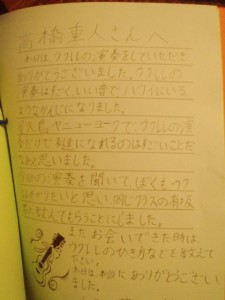 高橋重人さんへ
本日はウクレレの演奏をしていただき
ありがとうございました。ウクレレの
演奏はとてもいい音でハワイにいる
ようなかんじになりました。
ニューヨークで、ウクレレの演
奏だけで になれるのはすごいことだ
なあと思いました。
今回の演奏を聞いて、ぼくもウク
レレがやりたいと思い同じクラスの
教えてもらうことにしました。
また、お会いできた時は
ウクレレのひき方などを教えて
下さい。
本日は本当にありがとうござい
ました。